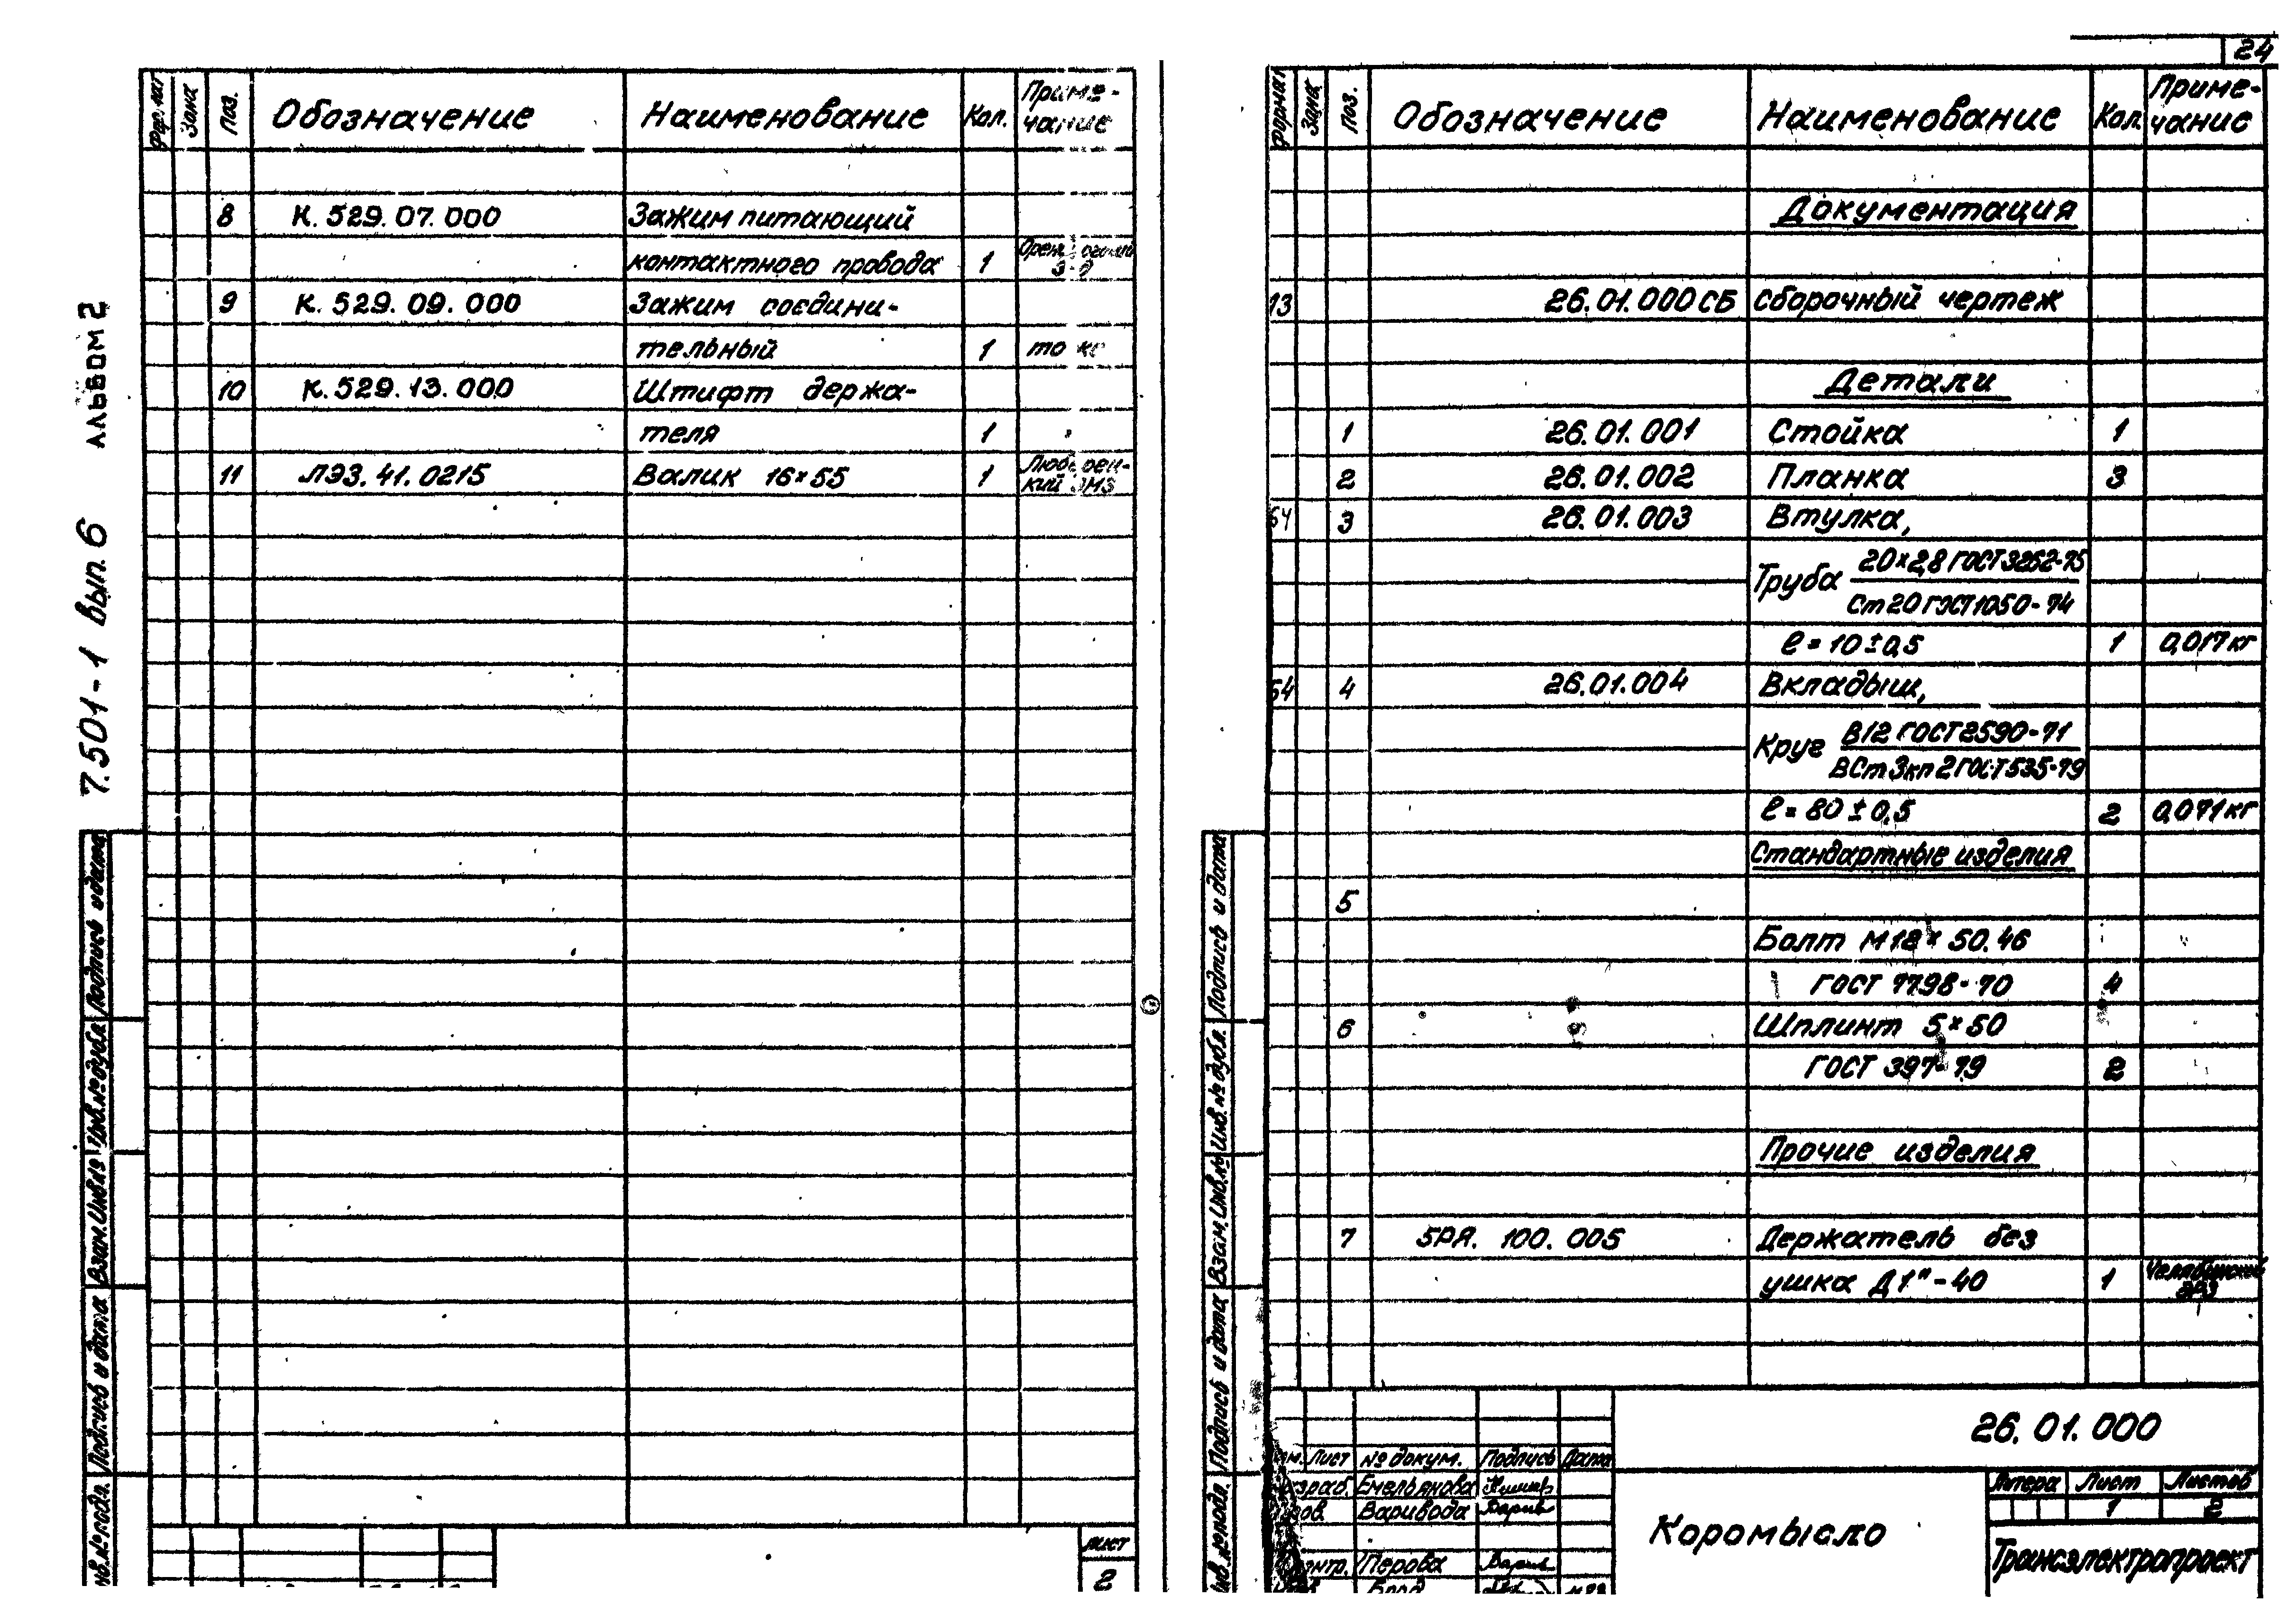 7.501-1 вып. 6 АЛЬБОМ 2
Зона Поз. Обозначение Наименование Кол. Приме-
чание
8 К.529.07.000 Зажим питающий
контактного провода 1
9 К.529.09.000 Зажим соедини-
тельный 1 то же
10 К.529.13.000 Штифт держа-
теля 1 "
11 ЛЭЗ.41.0215 Валик 16×55 1
Подпись и дата
Инв.№ дубл.
Взам.Инв.№
Подпись и дата
Инв.№ подл.
лист
2
24
Формат Зона Поз. Обозначение Наименование Кол. Приме-
чание
Документация
13 26.01.000СБ Сборочный чертеж
Детали
1 26.01.001 Стойка 1
2 26.01.002 Планка 3
64 3 26.01.003 Втулка,
Труба 20×2,8 ГОСТ 3262-75
Ст 20 ГОСТ 1050-74
ℓ=10±0,5 1 0,017кг
64 4 26.01.004 Вкладыш,
Круг В12 ГОСТ 2590-71
ВСт3кп2 ГОСТ 535-79
ℓ=80±0,5 2 0,071кг
Стандартные изделия
5
Болт М12×50.46
ГОСТ 7798-70 4
6 Шплинт 5×50
ГОСТ 397-79 2
Прочие изделия
7 5РЯ.100.005 Держатель без
ушка Д1"-40 1 Челябинский
ЭРЗ
Подпись и дата
Инв.№ дубл.
Взам.Инв.№
Подпись и дата
Инв.№ подл.
26.01.000
Лист № докум. Подпись Дата
Разраб. Емельянова
Пров. Варивода
Контр. Перова
Коромысло
Литера Лист Листов
1 2
Трансэлектропроект